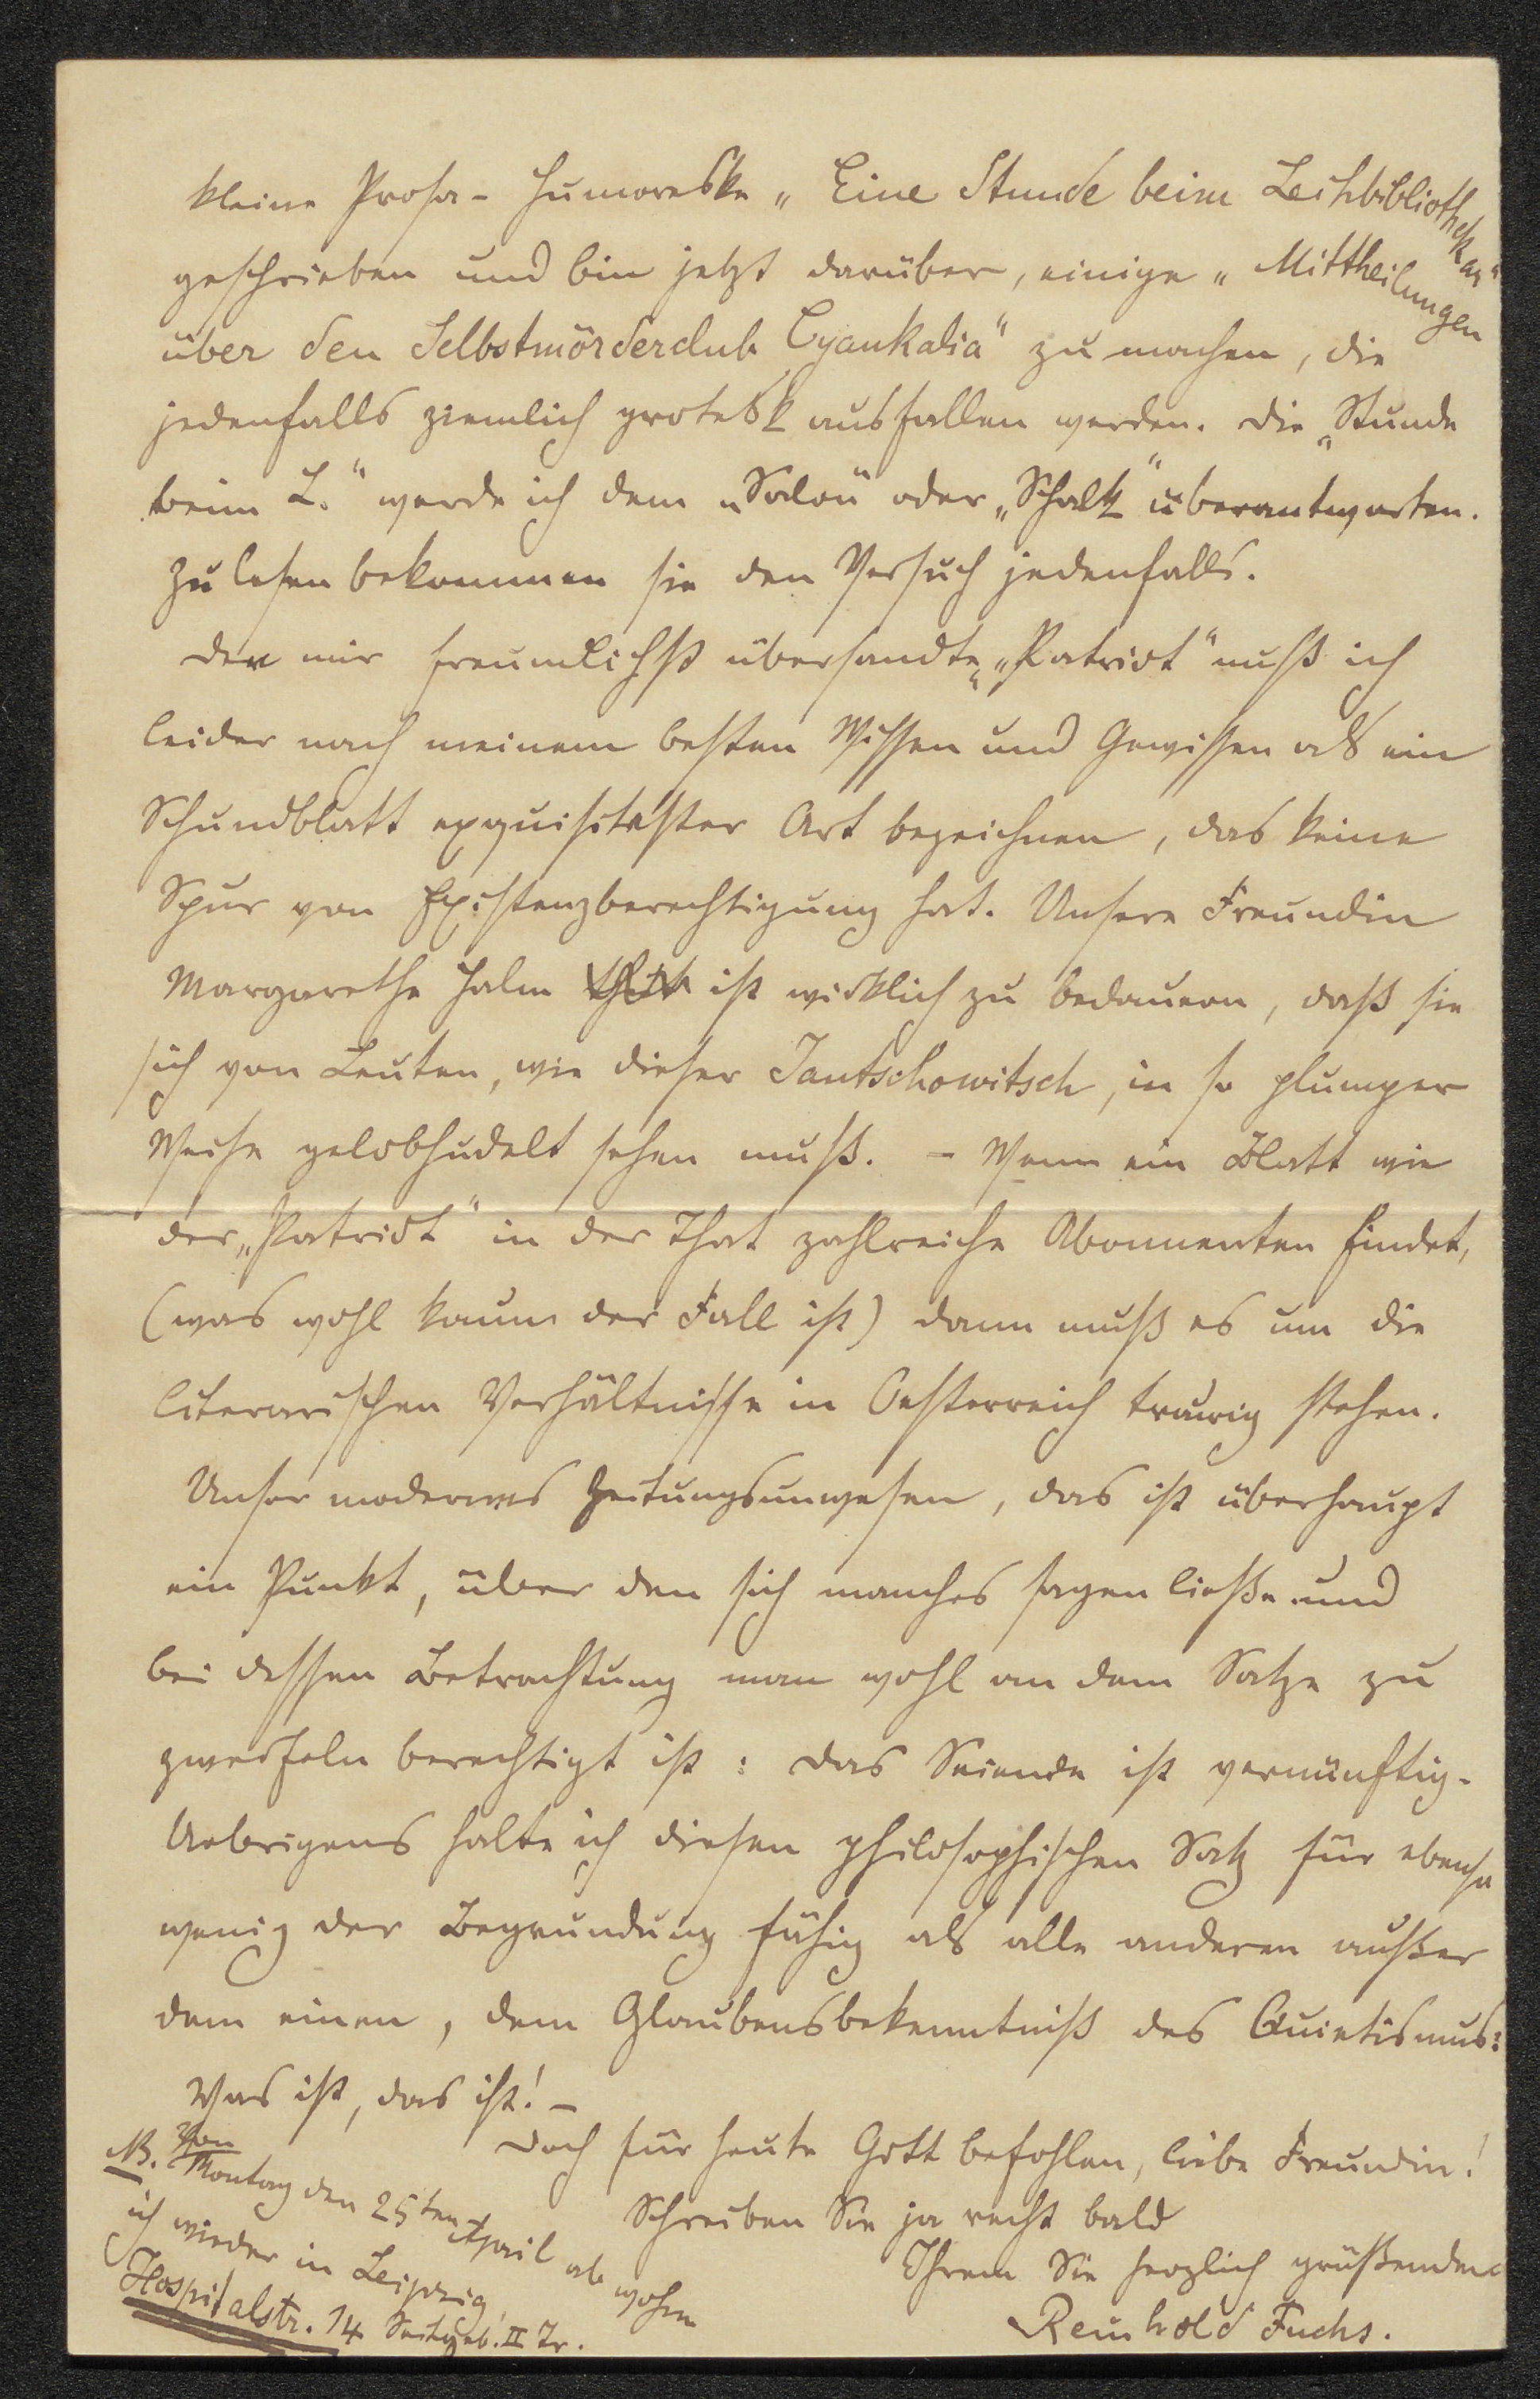 kleine Prosa-Humoreske „Eine Stunde beim Leihbibliothekar“
geschrieben und bin jetzt darüber, einige „Mittheilungen
über den Selbstmörderclub Cyankalia“ zu machen, die
jedenfalls ziemlich grotesk ausfallen werden. Die „Stunde
beim L.“ werde ich dem „Salon“ oder „Schalk“ überantworten.
Zu lesen bekommen sie den Versuch jedenfalls.
Den mir freundlichst übersandten „Patriot“ muß ich
leider nach meinem besten Wissen und Gewissen als ein
Schundblatt exquisitester Art bezeichnen, das keine
Spur von Existenzberechtigung hat. Unsere Freundin
Margarethe Halm ist wirklich zu bedauern, daß sie
sich von Leuten, wie dieser Jantschowitsch, in so plumper
Weise gelobhudelt sehen muß. – Wenn ein Blatt wie
der „Patriot“ in der That zahlreiche Abonnenten findet,
(was wohl kaum der Fall ist) dann muß es um die
literarischen Verhältnisse in Oesterreich traurig stehen.
Unser modernes Zeitungsunwesen, das ist überhaupt
ein Punkt, über den sich manches sagen ließe und
bei dessen Betrachtung man wohl an dem Satze zu
zweifeln berechtigt ist: Das Seiende ist vernünftig.
Uebrigens halte ich diesen philosophischen Satz für ebenso
wenig der Begründung fähig als alle anderen außer
dem einen, dem Glaubensbekenntniß des Quietismus:
Was ist, das ist! –
Doch für heute Gott befohlen, liebe Freundin!
Schreiben Sie ja recht bald
Ihrem Sie herzlich grüßenden
Reinhold Fuchs.
NB. Von
Montag den 25ten April ab wohne
ich wieder in Leipzig,
Hospitalstr. 14 Seitgeb. II Tr.